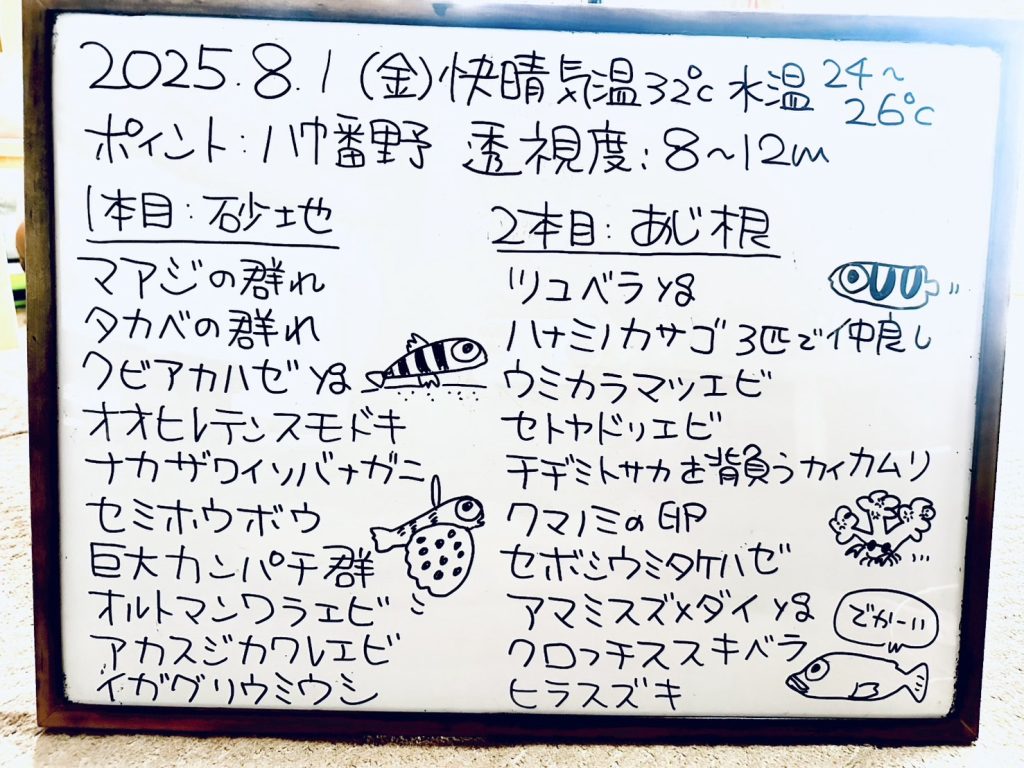 2025.8.1 (金)快晴 気温32℃ 水温 24～26℃
ポイント:八幡野 透視度:8～12m
1本目:砂地
マアジの群れ
タカベの群れ
クビアカハゼ yg
オオヒレテンスモドキ
ナカザワイソバナガニ
セミホウボウ
巨大カンパチ群
オルトマンワラエビ
アカスジカワレエビ
イガグリウミウシ
2本目:あじ根
ツユベラ yg
ハナミノカサゴ 3匹で仲良し
ウミカラマツエビ
セトヤドリエビ
チヂミトサカを背負うカイカムリ
クマノミの卵
セボシウミタケハゼ
アマミスズメダイ yg
でかーい
クロッチススキベラ
ヒラスズキ